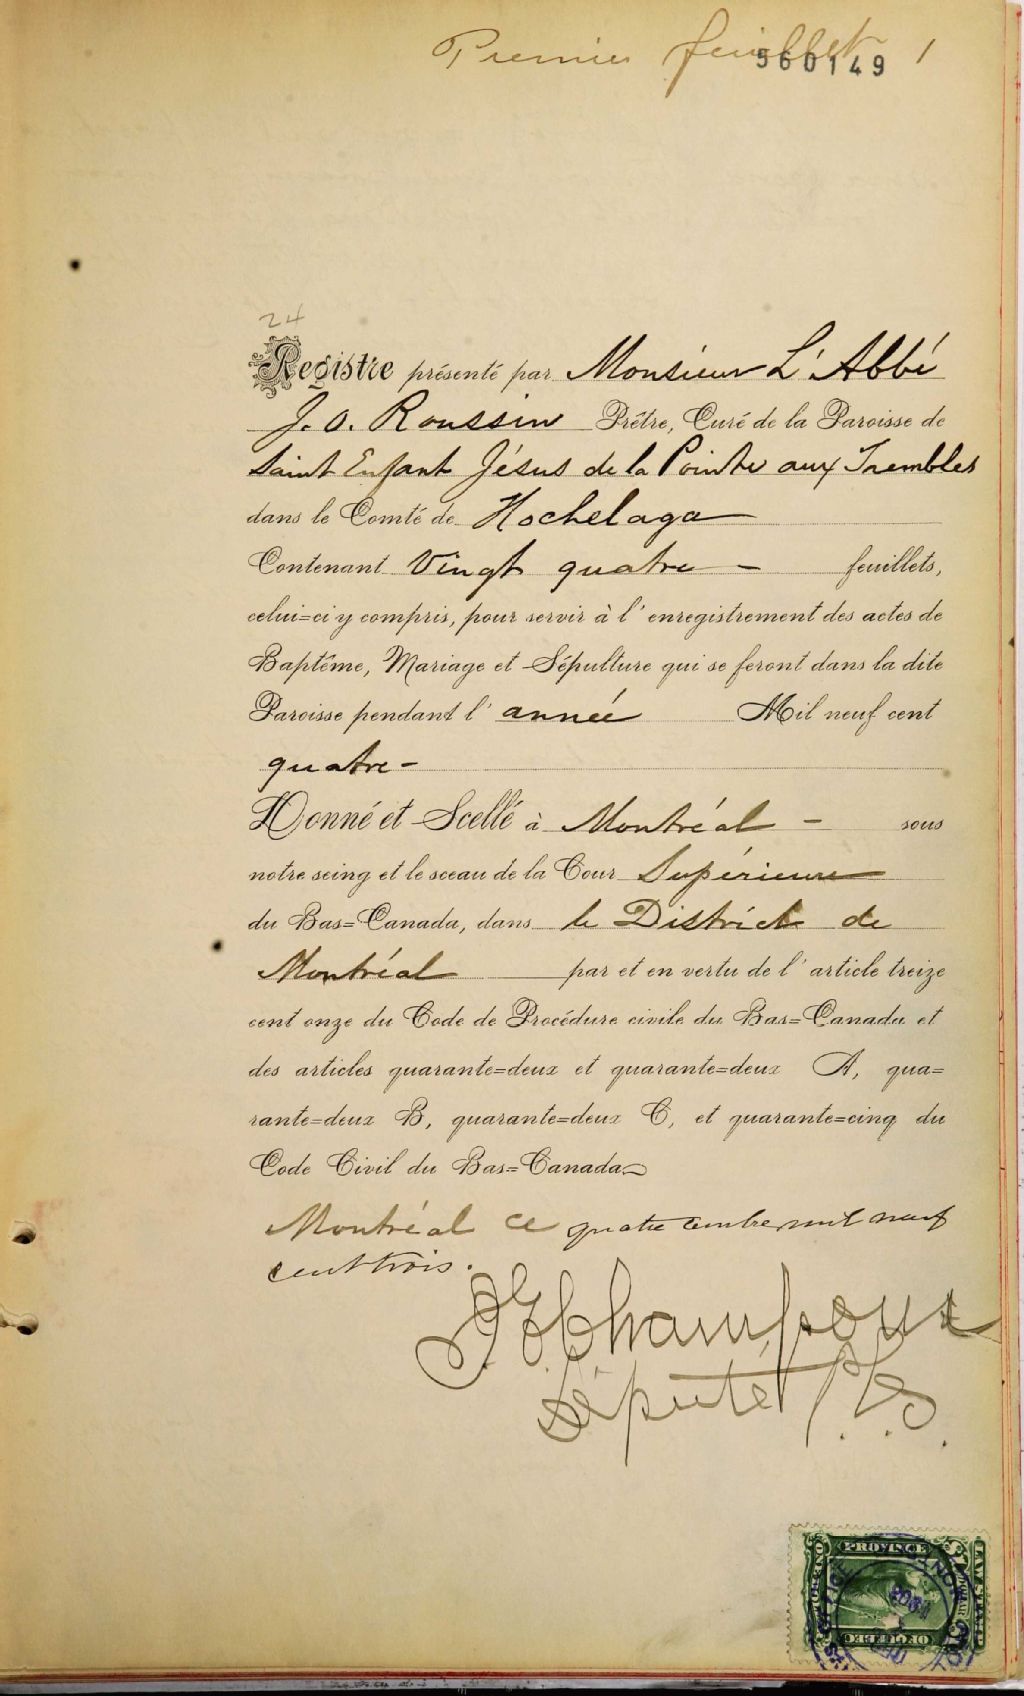 Premier feuillet 1
560149
24
Registre présenté par Monsieur L'Abbé
J. O. Roussin Prêtre, Curé de la Paroisse de
Saint Enfant Jésus de la Pointe aux Trembles
dans le Comté de Hochelaga
Contenant Vingt quatre - feuillets,
celui=ci y compris, pour servir à l'enregistrement des actes de
Baptême, Mariage et Sépulture qui se feront dans la dite
Paroisse pendant l'année Mil neuf cent
quatre -
Donné et Scellé à Montréal - sous
notre seing et le sceau de la Cour Supérieure
du Bas=Canada, dans le District de
Montréal par et en vertu de l'article treize
cent onze du Code de Procédure civile du Bas=Canada et
des articles quarante=deux et quarante=deux A, qua=
rante=deux B, quarante=deux C, et quarante=cinq du
Code Civil du Bas=Canada
Montréal ce quatre mil neuf
cent trois.
Champoux
Député P. C. S.
PROVINCE
OF QUEBEC
LAW STAMP